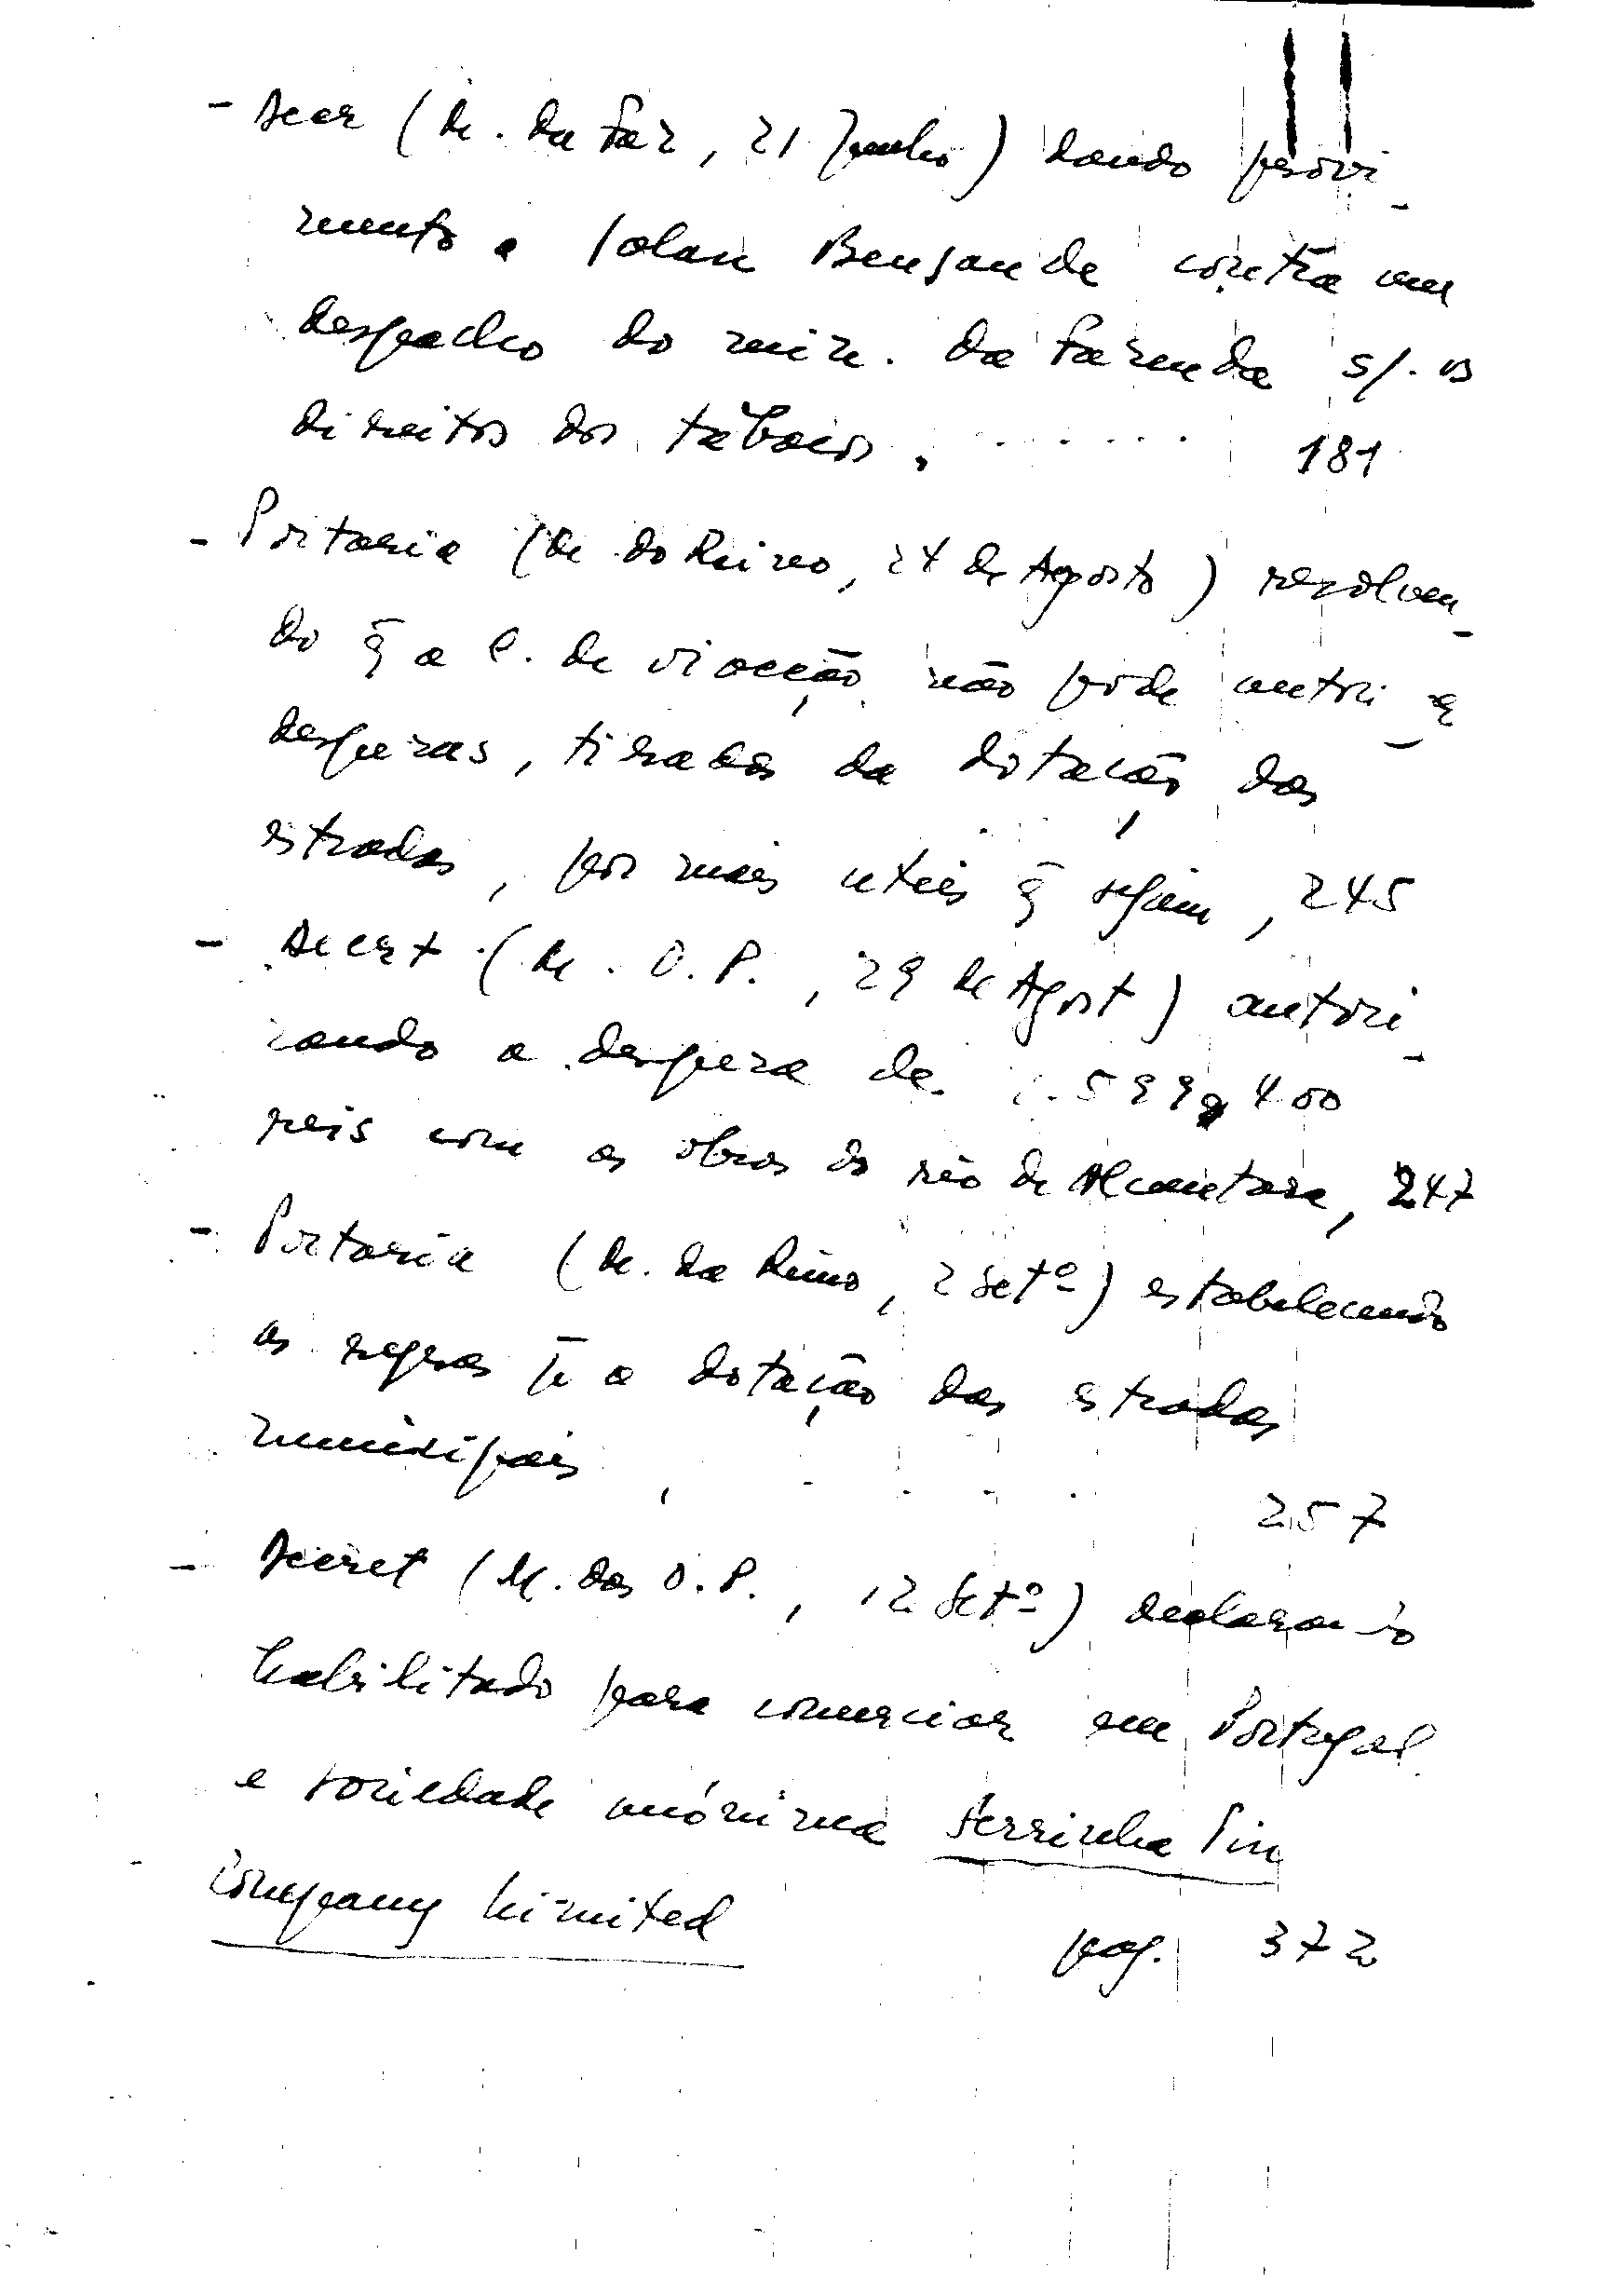 - Decr (M. da Faz, 21 Junho) dando provi-
mento a Bensaude contra um
despacho do min. da Fazenda s/. os
direitos dos tabacos, ...... 181
- Portaria (M. do Reino, 24 de Agosto) resolven-
do q̃ a C. de viacção não pode autori
despezas, tiradas da dotação das
estradas, por mais uteis q̃ sejam, 245
- Decrt (M. O. P., 29 de Agost) autori-
zando a despeza de 599$400
reis com as obras do rio de Alcantara, 247
- Portaria (M. do Reino, 2 Setº) estabelecendo
as regras p̄ a dotação das estradas
municipais, .... 257
- Decret (M. das O. P., 12 Setº) declarando
habilitado para comerciar em Portugal
a sociedade anónima Serrinha
Company Limited pag. 372